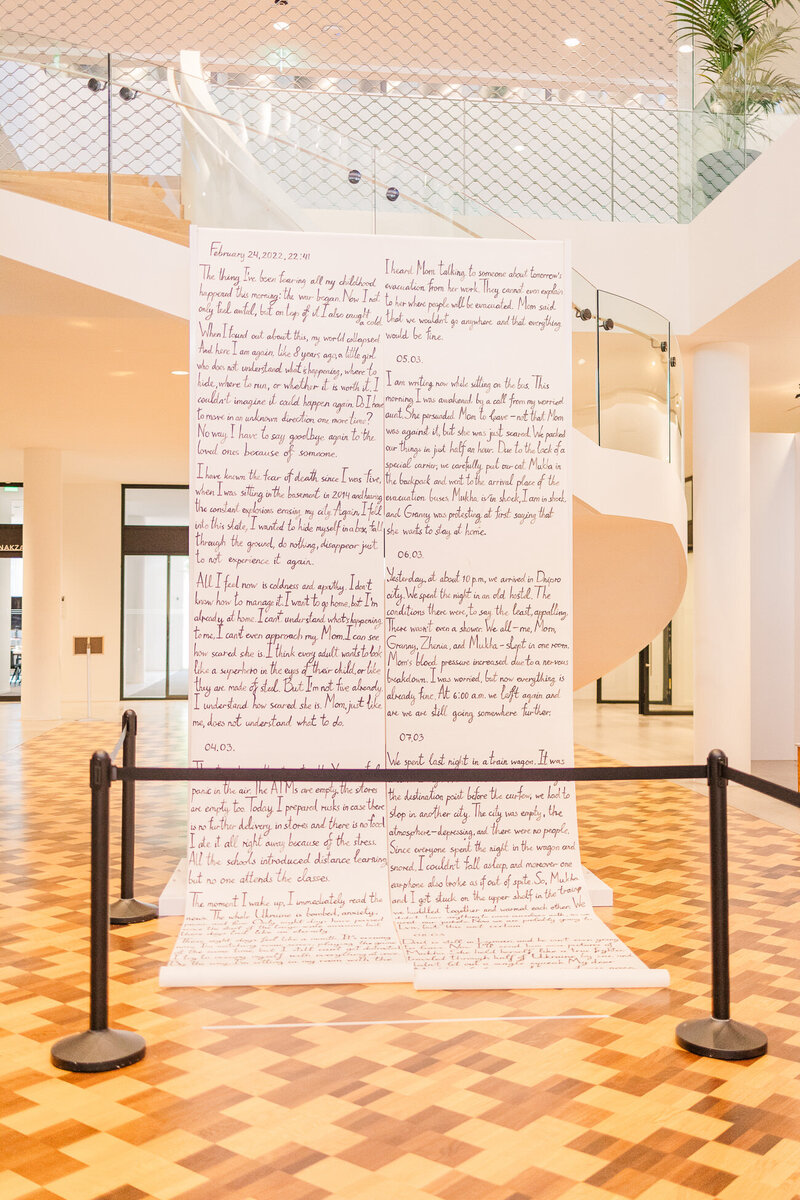 February 24, 2022, 22:41
The thing I've been fearing all my childhood
happened this morning: the war began. Now I not
only feel awful, but on top of it I also caught
a cold.
When I found out about this, my world collapsed.
And here I am again, like 8 years ago, a little girl
who does not understand what's happening, where to
hide, where to run, or whether it is worth it. I
couldn't imagine it could happen again. Do I have
to move in an unknown direction one more time?
No way I have to say goodbye again to the
loved ones because of someone.
I have known the fear of death since I was five,
when I was sitting in the basement in 2014 and hearing
the constant explosions erasing my city. Again, I fell
into this state, I wanted to hide myself in a box, fall
through the ground, do nothing, disappear just
to not experience it again.
All I feel now is coldness and apathy. I don't
know how to manage it. I want to go home, but I'm
already at home. I can't understand what's happening
to me, I can't even approach my Mom. I can see
how scared she is. I think every adult wants to look
like a superhero in the eyes of their child, or like
they are made of steel. But I'm not five already,
I understand how scared she is. Mom, just like
me, does not understand what to do.
04.03.
panic in the air. The ATMs are empty, the stores
are empty too. Today, I prepared rusks in case there
is no further delivery in stores and there is no food.
I ate it all right away because of the stress.
All the schools introduced distance learning
but no one attends the classes.
The moment I wake up, I immediately read the
news. The whole Ukraine is bombed, anxiety,
I heard Mom talking to someone about tomorrow's
evacuation from her work. They cannot even explain
to her where people will be evacuated. Mom said
that we wouldn't go anywhere and that everything
would be fine.
05.03.
I am writing now while sitting on the bus. This
morning I was awakened by a call from my worried
aunt. She persuaded Mom to leave – not that Mom
was against it, but she was just scared. We packed
our things in just half an hour. Due to the lack of a
special carrier, we carefully put our cat Mukha in
the backpack and went to the arrival place of the
evacuation buses. Mukha is in shock, I am in shock,
and Granny was protesting at first saying that
she wants to stay at home.
06.03.
Yesterday, at about 10 p.m, we arrived in Dnipro
city. We spent the night in an old hostel. The
conditions there were, to say the least, appalling.
There wasn't even a shower. We all – me, Mom,
Granny, Zhenia, and Mukha – slept in one room.
Mom's blood pressure increased due to a nervous
breakdown. I was worried, but now everything is
already fine. At 6:00 a.m. we left again and
are we are still going somewhere further.
07.03
We spent last night in a train wagon. It was
the destination point before the curfew, we had to
stop in another city. The city was empty, the
atmosphere – depressing, and there were no people.
Since everyone spent the night in the wagon and
snored, I couldn't fall asleep, and moreover one
earphone also broke as if out of spite. So, Mukha
and I got stuck on the upper shelf in the train
we huddled together and warmed each other. We